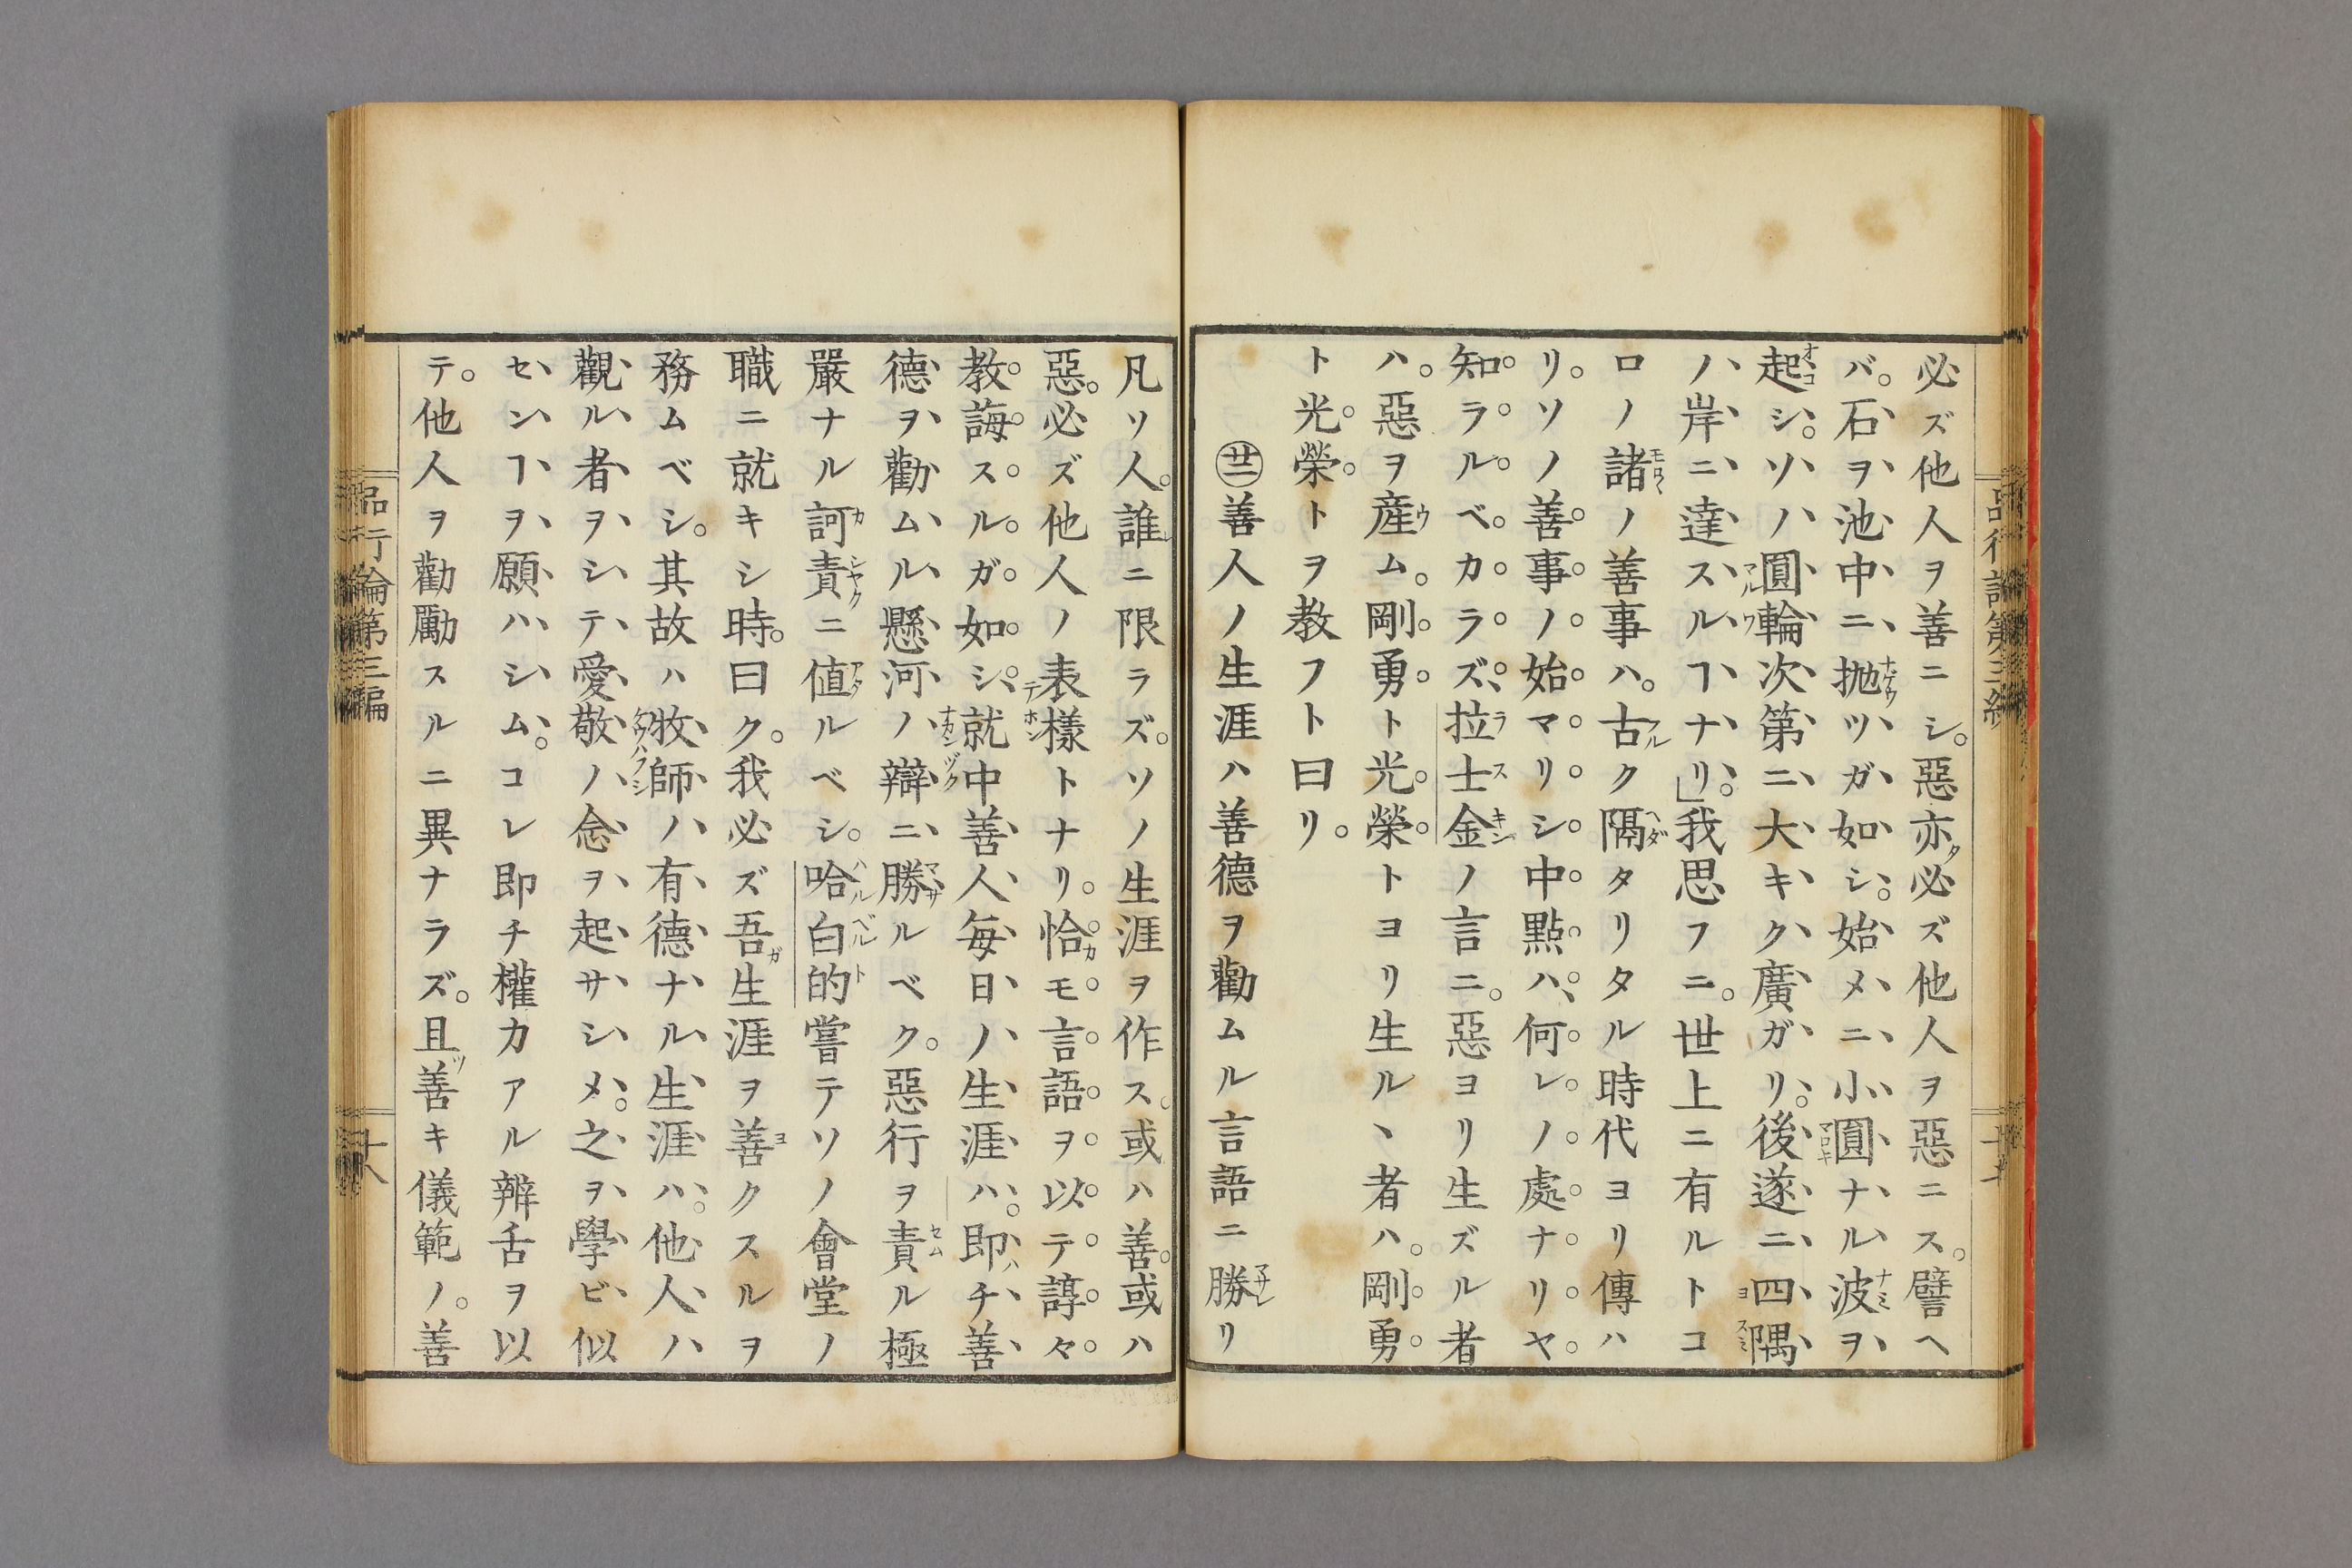 必ズ他人ヲ善ニシ。惡亦必ズ他人ヲ惡ニス。譬ヘ
バ。石ヲ池中ニ抛ツガ如シ。始メニ小圓ナル波ヲ
起シ。ソノ圓輪次第ニ大キク廣ガリ。後遂ニ四隅
ノ岸ニ達スルヿナリ。」我思フニ。世上ニ有ルトコ
ロノ諸ノ善事ハ。古ク隔タリタル時代ヨリ傳ハ
リ。ソノ善事ノ始マリシ中點ハ、何レノ處ナリヤ
知ラルベカラズ、拉士金ノ言ニ。惡ヨリ生ズル者
ハ。惡ヲ産ム。剛勇ト光榮トヨリ生ルヽ者ハ。剛勇
ト光榮トヲ教フト曰リ。
㊁善人ノ生涯ハ善德ヲ勸ムル言語ニ勝リ
凡ソ人。誰ニ限ラズ。ソノ生涯ヲ作ス。或ハ善。或ハ
惡。必ズ他人ノ表樣トナリ。恰モ言語ヲ以テ諄々
教誨スルガ如シ、就中善人毎日ノ生涯ハ。即チ善
德ヲ勸ムル懸河ノ辯ニ勝ルベク。惡行ヲ責ル極
嚴ナル訶責ニ値ルベシ。哈白的嘗テソノ會堂ノ
職ニ就キシ時。曰ク。我必ズ吾生涯ヲ善クスルヲ
務ムベシ。其故ハ牧師ノ有德ナル生涯ハ。他人ノ
觀ル者ヲシテ愛敬ノ念ヲ起サシメ。之ヲ學ビ似
センヿヲ願ハシム。コレ即チ權力アル辨舌ヲ以
テ。他人ヲ勸勵スルニ異ナラズ。且善キ儀範ノ。善
品行論第三編
十八